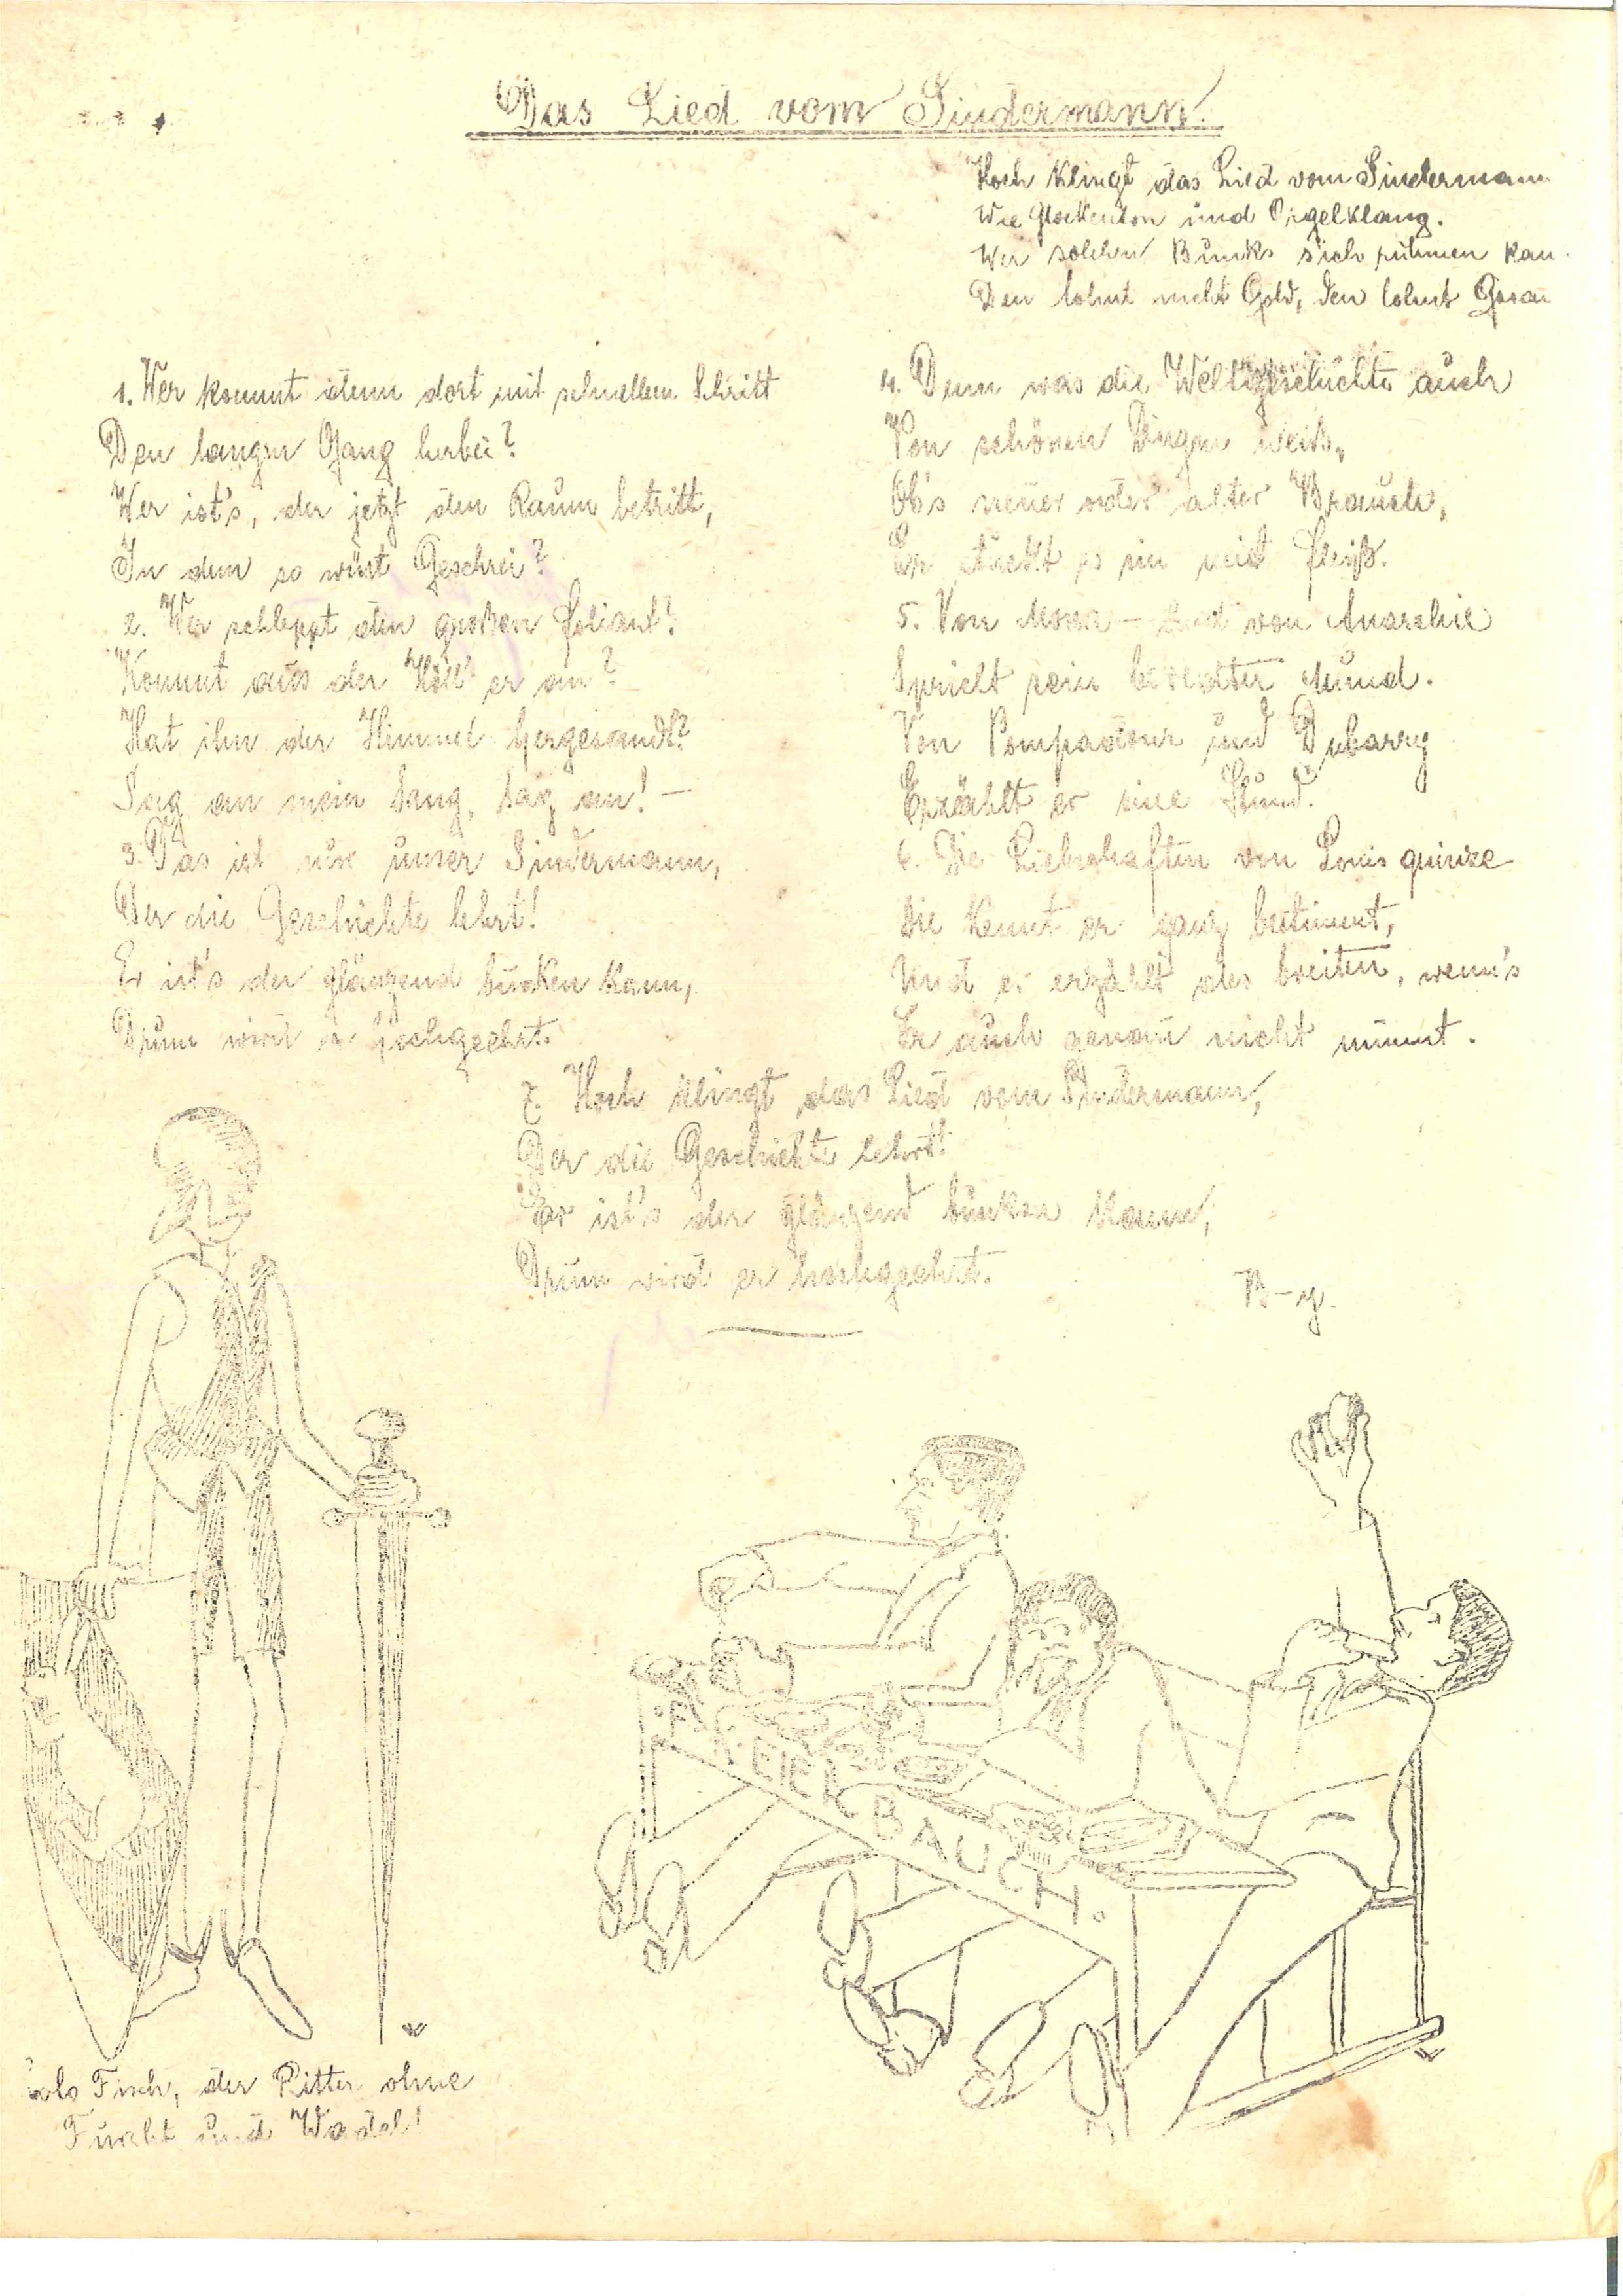 Das Lied vom Sindermann.
Hoch klingt das Lied vom Sindermann
Wie Glockenton und Orgelklang.
Wer solchen Bunks sich rühmen kan
Den lohnt nicht Gold, den lohnt Gesan
1. Wer kommt denn dort mit schnellem Schritt
Den langen Gang herbei?
Wer ist's, der jetzt den Raum betritt,
In dem so wüst Geschrei?
2. Wer schleppt den großen Foliant?
Kommt aus der Höll' er an?
Hat ihn der Himmel hergesandt?
Sag an mein Sang, sag an! —
3. Das ist nur unser Sindermann,
Der die Geschichte lehrt!
Er ist's der glänzend bunken kann,
Drum wird er hochgeehrt.
4. Denn was die Weltgeschichte auch
Von schönen Dingen weiß,
Ob's neuer oder alter Brauch,
Er es ein mit Fleiß.
5. Von — und von Anarchie
Spricht sein beredter Mund.
Von Pompadour und Dubarry
Erzählt er eine Stund'.
6. Die Liebschaften von Louis quinze
Die kennt er ganz bestimmt,
Und er erzählt des breiten, wenn's
Er auch genau nicht nimmt.
7. Hoch klingt das Lied vom Sindermann,
Der die Geschichte lehrt!
Er ist's der glänzend bunken kann,
Drum wird er hochgeehrt.
B-y.
FREIBAUCH.
Fisch, der Ritter ohne
Furcht und Wadel!